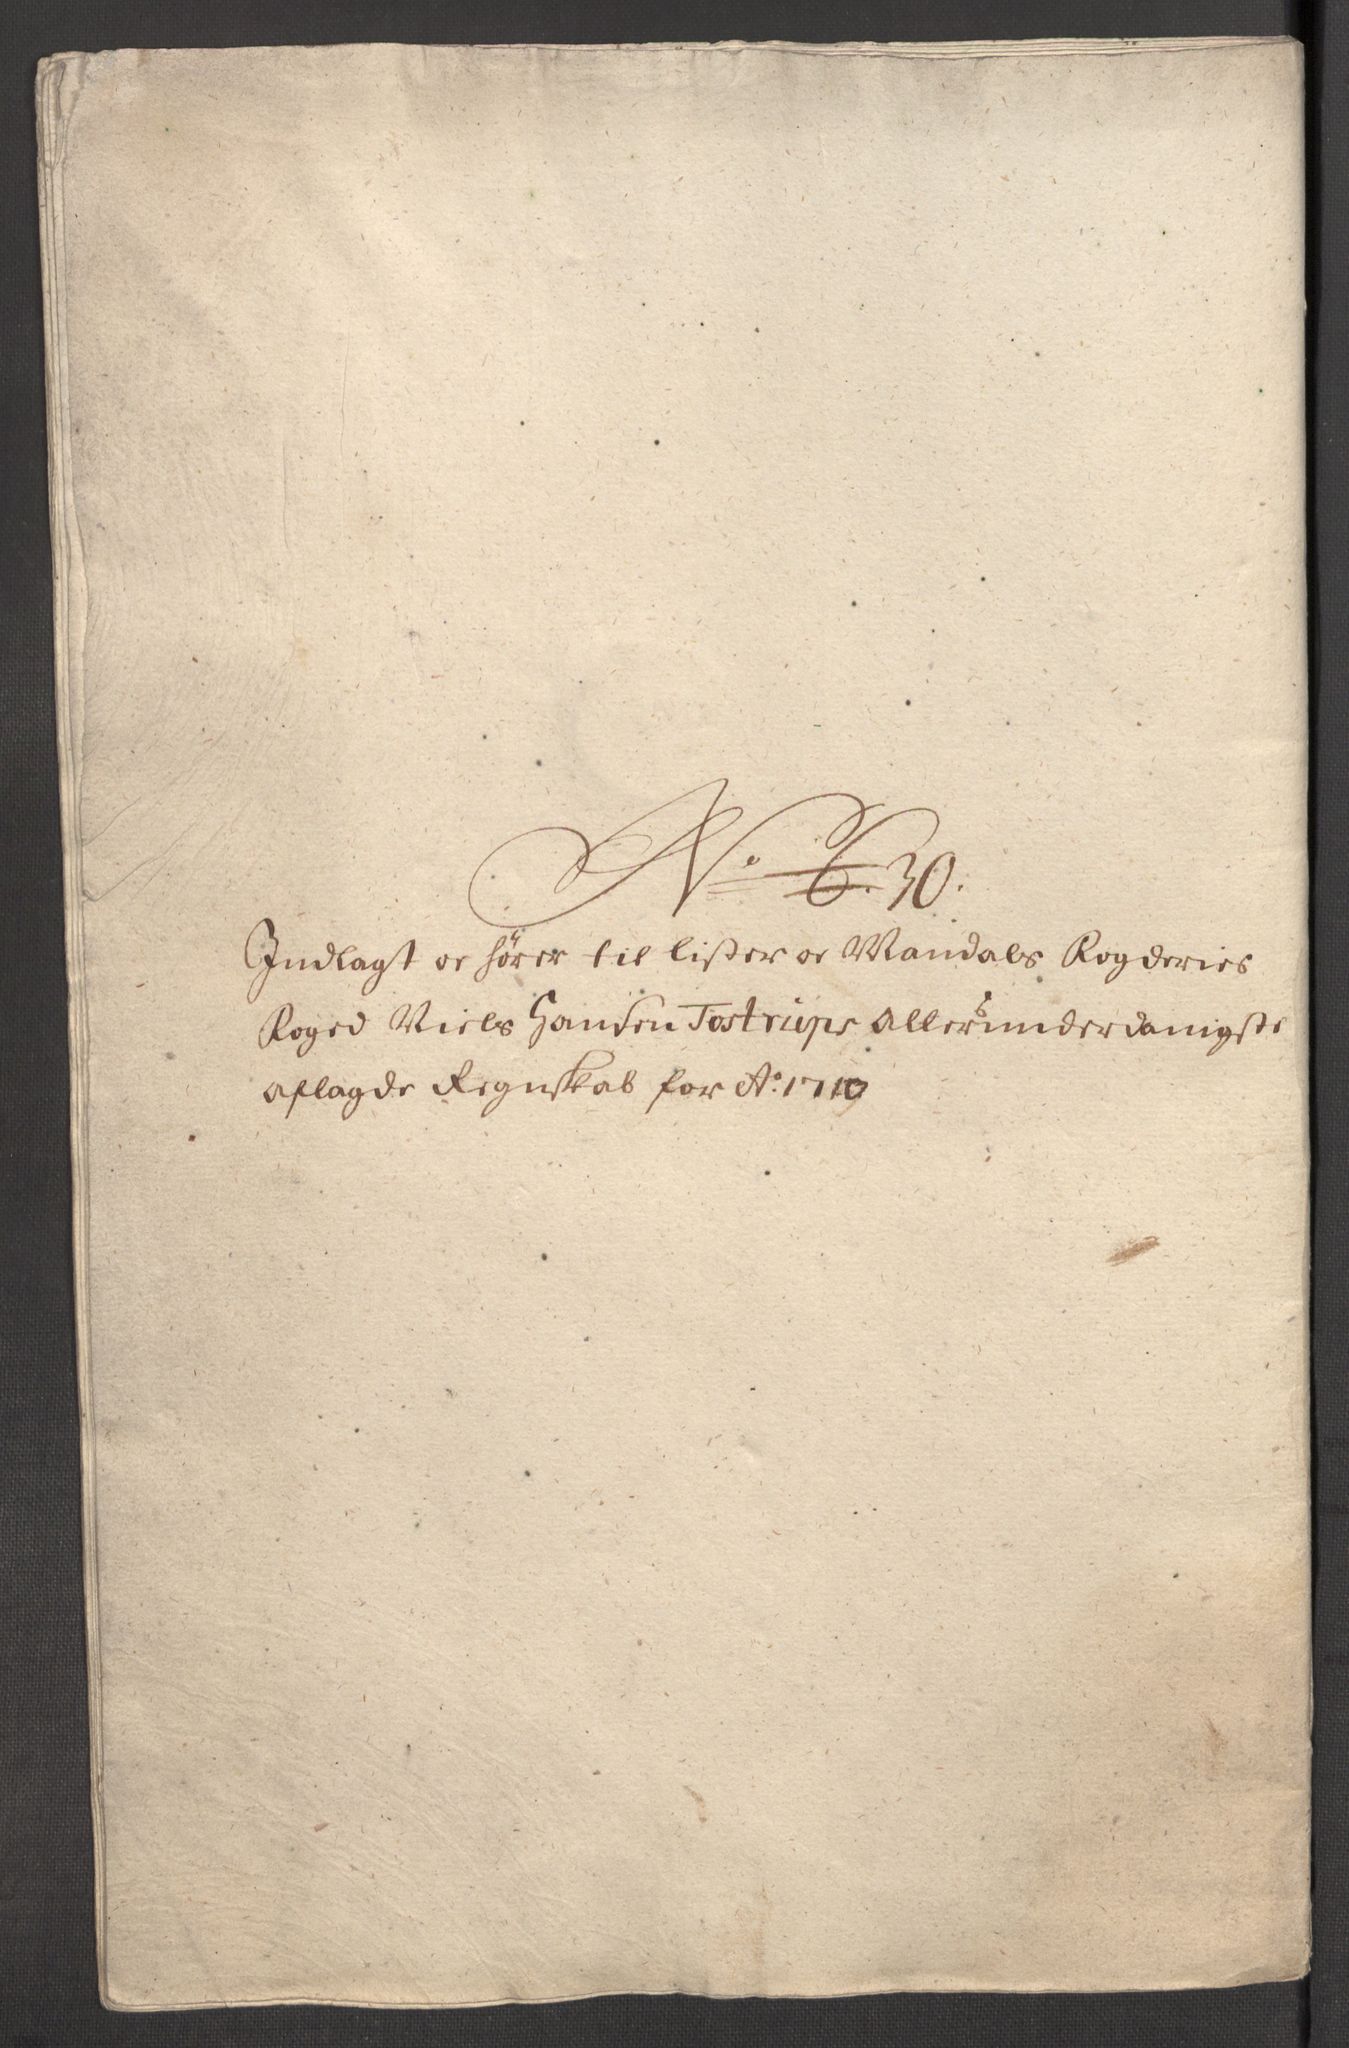 No. 6. 30.
Indlagt oc hører til Lister oc Mandals Fogderies
Foged Niels Hansen Tostrups Allerunderdanigste
aflagde Regnskab for Ao: 1710